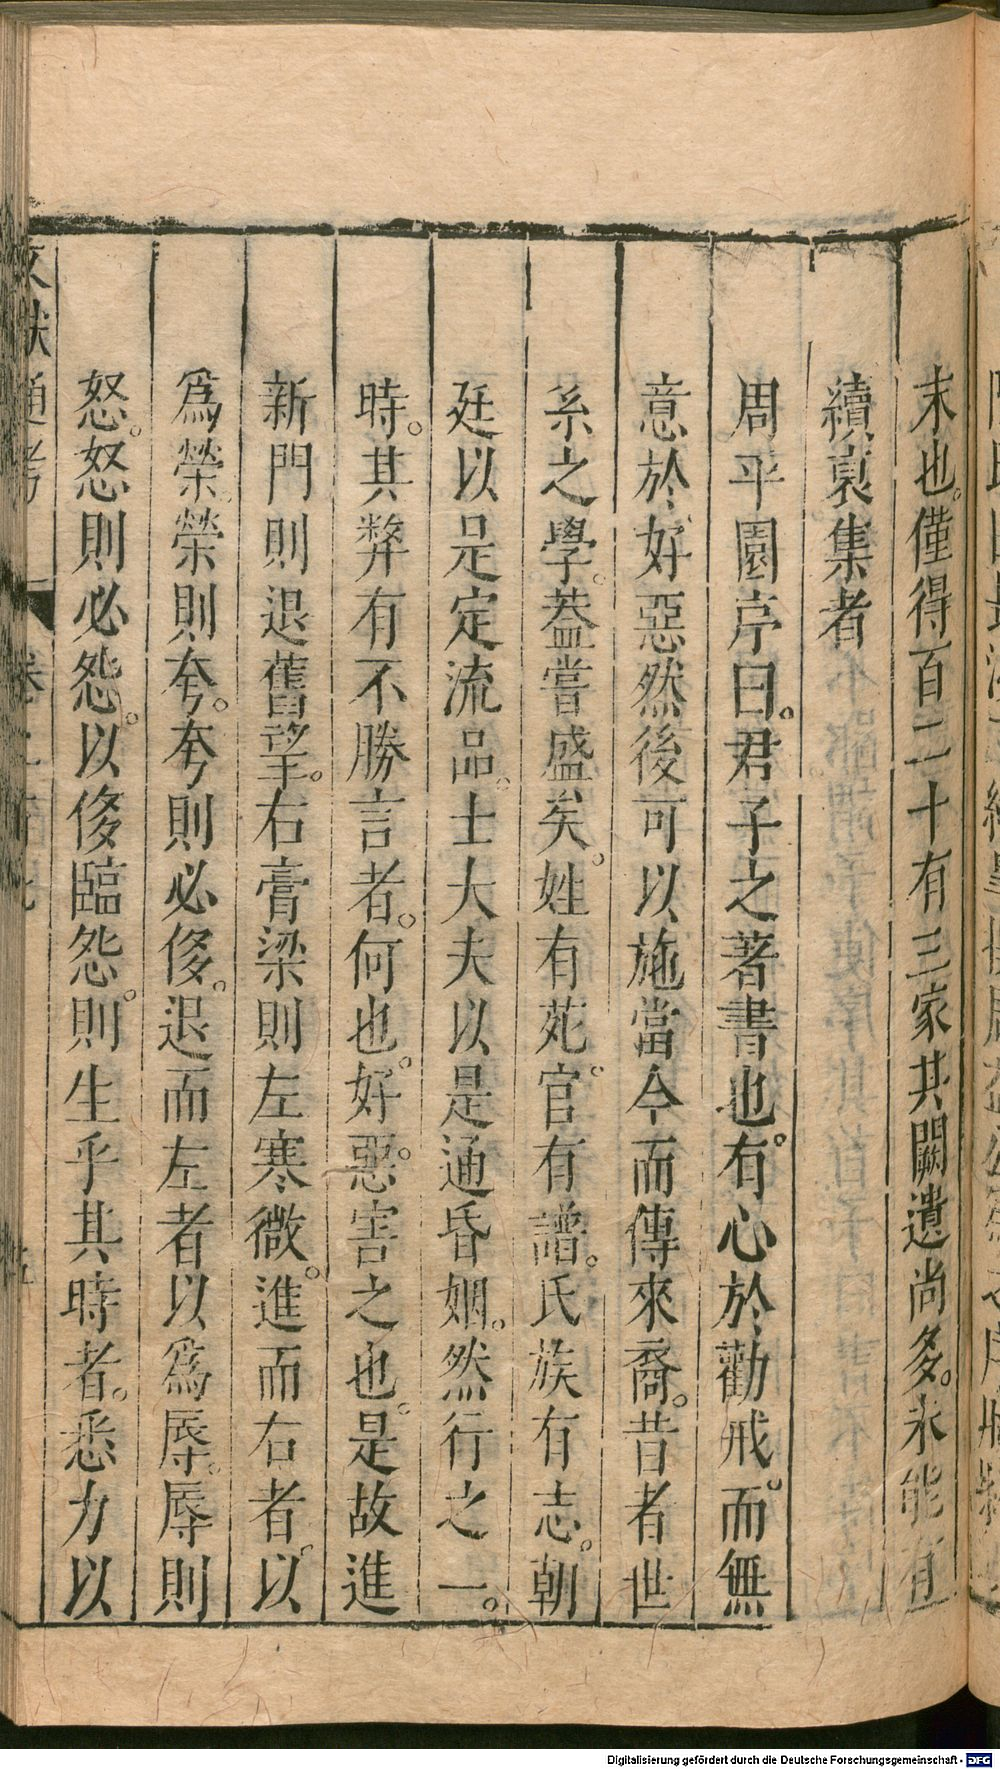 末也。僅得百二十有三家其闕遺尚多。未能有
續裒集者
周平園序曰。君子之著書也。有心於勸戒。而無
意於好惡然後可以施當今而傳來裔。昔者世
系之學。葢嘗盛矣。姓有苑。官有譜。氏族有志。朝
廷以是定流品。士大夫以是通昏姻。然行之一。
時。其弊有不勝言者。何也。好惡。害之也。是故進
新門則退舊望。右膏梁則左寒微。進而右者。以
爲榮。榮則夸。夸則必侈。退而左者以爲辱。辱則
怒。怒則必怨。以侈臨怨。則生乎其時者。悉力以
文獻通考
Digitalisierung gefördert durch die Deutsche Forschungsgemeinschaft - DFG